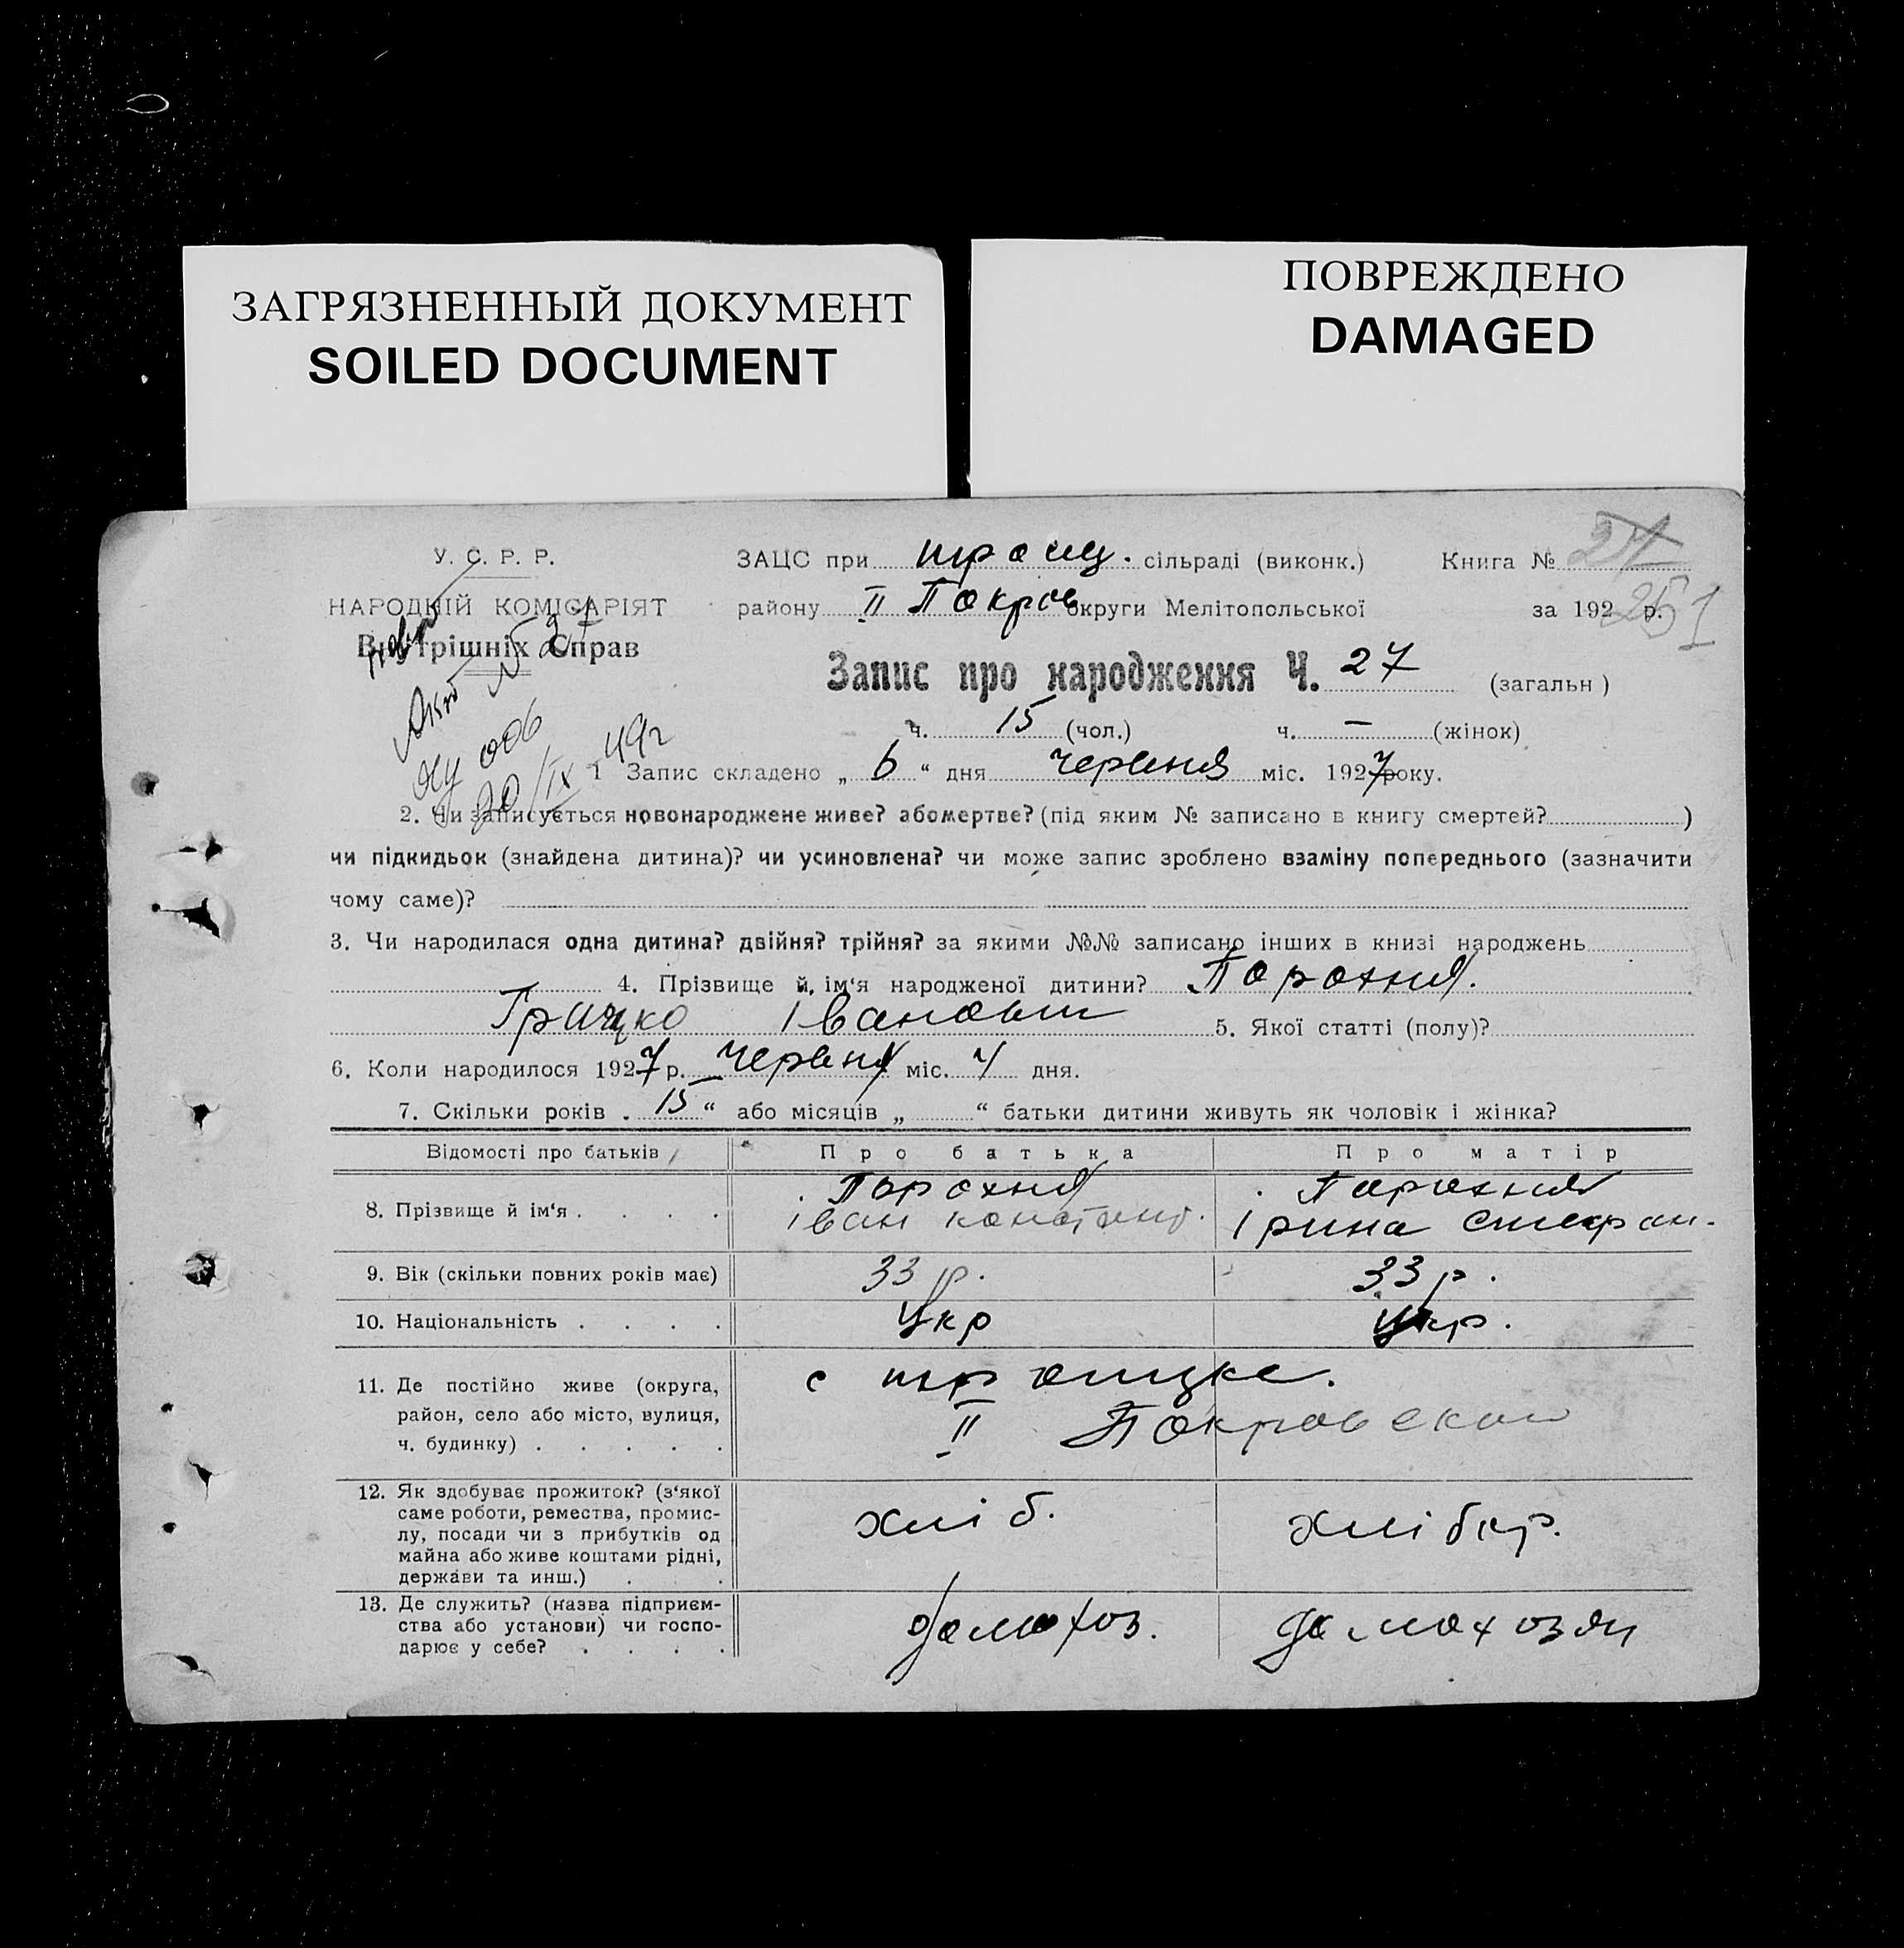 ЗАГРЯЗНЕННЫЙ ДОКУМЕНТ
SOILED DOCUMENT
ПОВРЕЖДЕНО
DAMAGED
У. С. Р. Р.
НАРОДНІЙ КОМІСАРІЯТ
Внутрішніх Справ
ЗАЦС при троиц. сільраді (виконк.)
району II Покров округи Мелітопольської
Книга №
за 192 р.
251
Запис про народження Ч. 27 (загальн)
ч. 15 (чол.) ч. — (жінок)
№ 27
20/IX 49г
1 Запис складено „ 6 “ дня червня міс. 1927 року.
2. Чи записується новонароджене живе? або мертве? (під яким № записано в книгу смертей? )
чи підкидьок (знайдена дитина)? чи усиновлена? чи може запис зроблено взаміну попереднього (зазначити
чому саме)?
3. Чи народилася одна дитина? двійня? трійня? за якими №№ записано інших в книзі народжень
4. Прізвище й ім‘я народженої дитини? Порохня.
Грицко Іванович 5. Якої статті (полу)?
6. Коли народилося 1927 р. червня міс. 4 дня.
7. Скільки років . 15 “ або місяців „ “ батьки дитини живуть як чоловік і жінка?
Відомості про батьків
Про батька
Про матір
8. Прізвище й ім‘я . . . .
Порохня
Іван Констант.
Порохня
Ірина Стефан.
9. Вік (скільки повних років має)
33 р.
33 р.
10. Національність . . . .
Укр
Укр.
11. Де постійно живе (округа,
район, село або місто, вулиця,
ч. будинку) . . . . .
с троицке.
II Покровском
12. Як здобуває прожиток? (з‘якої
саме роботи, ремества, промис-
лу, посади чи з прибутків од
майна або живе коштами рідні,
держави та инш.) . . .
хліб.
хлібкр.
13. Де служить? (назва підприєм-
ства або установи) чи госпо-
дарює у себе? . . . .
домохоз.
домохозяи